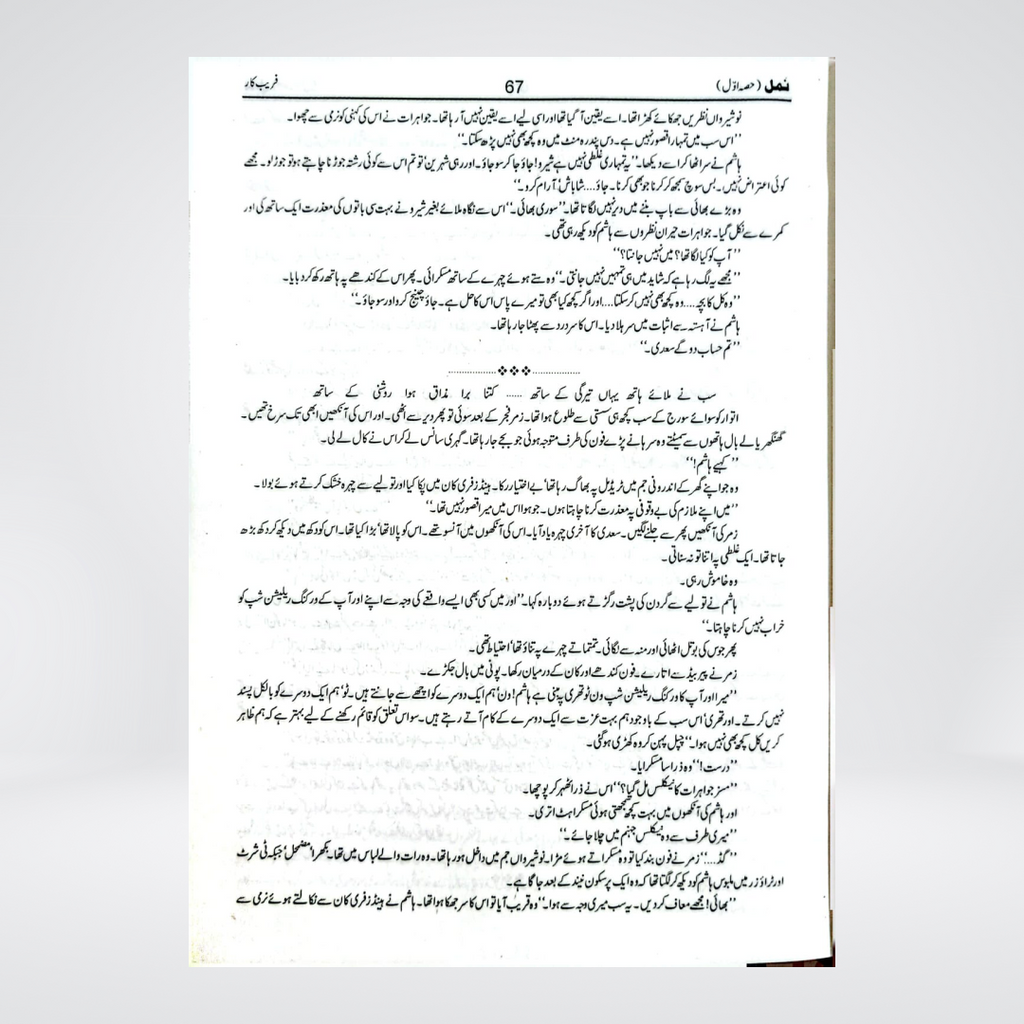 نمل (حصہ اوّل) 67 فریب کار
نوشیرواں نظریں جھکائے کھڑا تھا۔ اسے یقین آ گیا تھا اور اسی لیے اسے یقین نہیں آ رہا تھا۔ جواہرات نے اس کی کہنی کو نرمی سے چھوا۔
’’اس سب میں تمہارا قصور نہیں ہے۔ دس پندرہ منٹ میں وہ کچھ بھی نہیں پڑھ سکتا۔‘‘
ہاشم نے سر اٹھا کر اسے دیکھا۔ ’’یہ تمہاری غلطی نہیں ہے شیرو! جاؤ جا کر سو جاؤ۔ اور رہی شہرین تو تم اس سے کوئی رشتہ جوڑنا چاہتے ہو تو جوڑ لو۔ مجھے
کوئی اعتراض نہیں۔ بس سوچ سمجھ کر کرنا جو بھی کرنا۔ جاؤ.... شاباش‘ آرام کرو۔‘‘
وہ بڑے بھائی سے باپ بننے میں دیر نہیں لگاتا تھا۔ ’’سوری بھائی۔‘‘ اس سے نگاہ ملائے بغیر شیرو نے بہت سی باتوں کی معذرت ایک ساتھ کی اور
کمرے سے نکل گیا۔ جواہرات حیران نظروں سے ہاشم کو دیکھ رہی تھی۔
’’آپ کو کیا لگا تھا؟ میں نہیں جانتا؟‘‘
’’مجھے یہ لگ رہا ہے کہ شاید میں ہی تمہیں نہیں جانتی۔‘‘ وہ ستے ہوئے چہرے کے ساتھ مسکرائی۔ پھر اس کے کندھے پہ ہاتھ رکھ کر دبایا۔
’’وہ کل کا بچہ.... وہ کچھ بھی نہیں کر سکتا.... اور اگر کچھ کیا بھی تو میرے پاس اس کا حل ہے۔ جاؤ چینج کرو اور سو جاؤ۔‘‘
ہاشم نے آہستہ سے اثبات میں سر ہلا دیا۔ اس کا سر درد سے پھٹا جا رہا تھا۔
’’تم حساب دو گے سعدی۔‘‘
................❖❖❖................
سب نے ملائے ہاتھ یہاں تیرگی کے ساتھ ...... کتنا برا مذاق ہوا روشنی کے ساتھ
اتوار کو سوائے سورج کے سب کچھ ہی سستی سے طلوع ہوا تھا۔ زمر فجر کے بعد سوئی تو پھر دیر سے اٹھی۔ اور اس کی آنکھیں ابھی تک سرخ تھیں۔
گھنگھریالے بال ہاتھوں سے سمیٹتے وہ سرہانے پڑے فون کی طرف متوجہ ہوئی جو بجے جا رہا تھا۔ گہری سانس لے کر اس نے کال لے لی۔
’’کہیے ہاشم!‘‘
وہ جو اپنے گھر کے اندرونی جم میں ٹریڈمل پہ بھاگ رہا تھا‘ بے اختیار رکا۔ ہینڈز فری کان میں پکا کیا اور تولیے سے چہرہ خشک کرتے ہوئے بولا۔
’’میں اپنے ملازم کی بے وقوفی پہ معذرت کرنا چاہتا ہوں۔ جو ہوا اس میں میرا قصور نہیں تھا۔‘‘
زمر کی آنکھیں پھر سے جلنے لگیں۔ سعدی کا آخری چہرہ یاد آیا۔ اس کی آنکھوں میں آنسو تھے۔ اس کو پالا تھا‘ بڑا کیا تھا۔ اس کو دکھ میں دیکھ کر دکھ بڑھ
جاتا تھا۔ ایک غلطی پہ اتنا تو نہ سناتی۔
وہ خاموش رہی۔
ہاشم نے تولیے سے گردن کی پشت رگڑتے ہوئے دوبارہ کہا۔ ’’اور میں کسی بھی ایسے واقعے کی وجہ سے اپنے اور آپ کے ورکنگ ریلیشن شپ کو
خراب نہیں کرنا چاہتا۔‘‘
پھر جوس کی بوتل اٹھائی اور منہ سے لگائی۔ تمتماتے چہرے پہ تناؤ تھا‘ احتیاط تھی۔
زمر نے پیر بیڈ سے اتارے۔ فون کندھے اور کان کے درمیان رکھا۔ پونی میں بال جکڑے۔
’’میرا اور آپ کا ورکنگ ریلیشن شپ ون ٹو تھری پہ مبنی ہے ہاشم! ون‘ ہم ایک دوسرے کو اچھے سے جانتے ہیں۔ ٹو‘ ہم ایک دوسرے کو بالکل پسند
نہیں کرتے۔ اور تھری‘ اس سب کے باوجود ہم بہت عزت سے ایک دوسرے کے کام آتے رہتے ہیں۔ سو اس تعلق کو قائم رکھنے کے لیے بہتر ہے کہ ہم ظاہر
کریں کل کچھ بھی نہیں ہوا۔‘‘ چپل پہن کر وہ کھڑی ہو گئی۔
’’درست!‘‘ وہ ذرا سا مسکرایا۔
’’مسز جواہرات کا نیکلس مل گیا؟‘‘ اس نے ذرا ٹھہر کر پوچھا۔
اور ہاشم کی آنکھوں میں بہت کچھ سمجھتی ہوئی مسکراہٹ اتری۔
’’میری طرف سے وہ نیکلس جہنم میں چلا جائے۔‘‘
’’گڈ....‘‘ زمر نے فون بند کیا تو وہ مسکراتے ہوئے مڑا۔ نوشیرواں جم میں داخل ہو رہا تھا۔ وہ رات والے لباس میں تھا۔ بکھرا‘ مضمحل‘ جبکہ ٹی شرٹ
اور ٹراؤزر میں ملبوس ہاشم کو دیکھ کر لگتا تھا کہ وہ ایک پرسکون نیند کے بعد جاگا ہے۔
’’بھائی! مجھے معاف کر دیں۔ یہ سب میری وجہ سے ہوا۔‘‘ وہ قریب آیا تو اس کا سر جھکا ہوا تھا۔ ہاشم نے ہینڈز فری کان سے نکالتے ہوئے نرمی سے